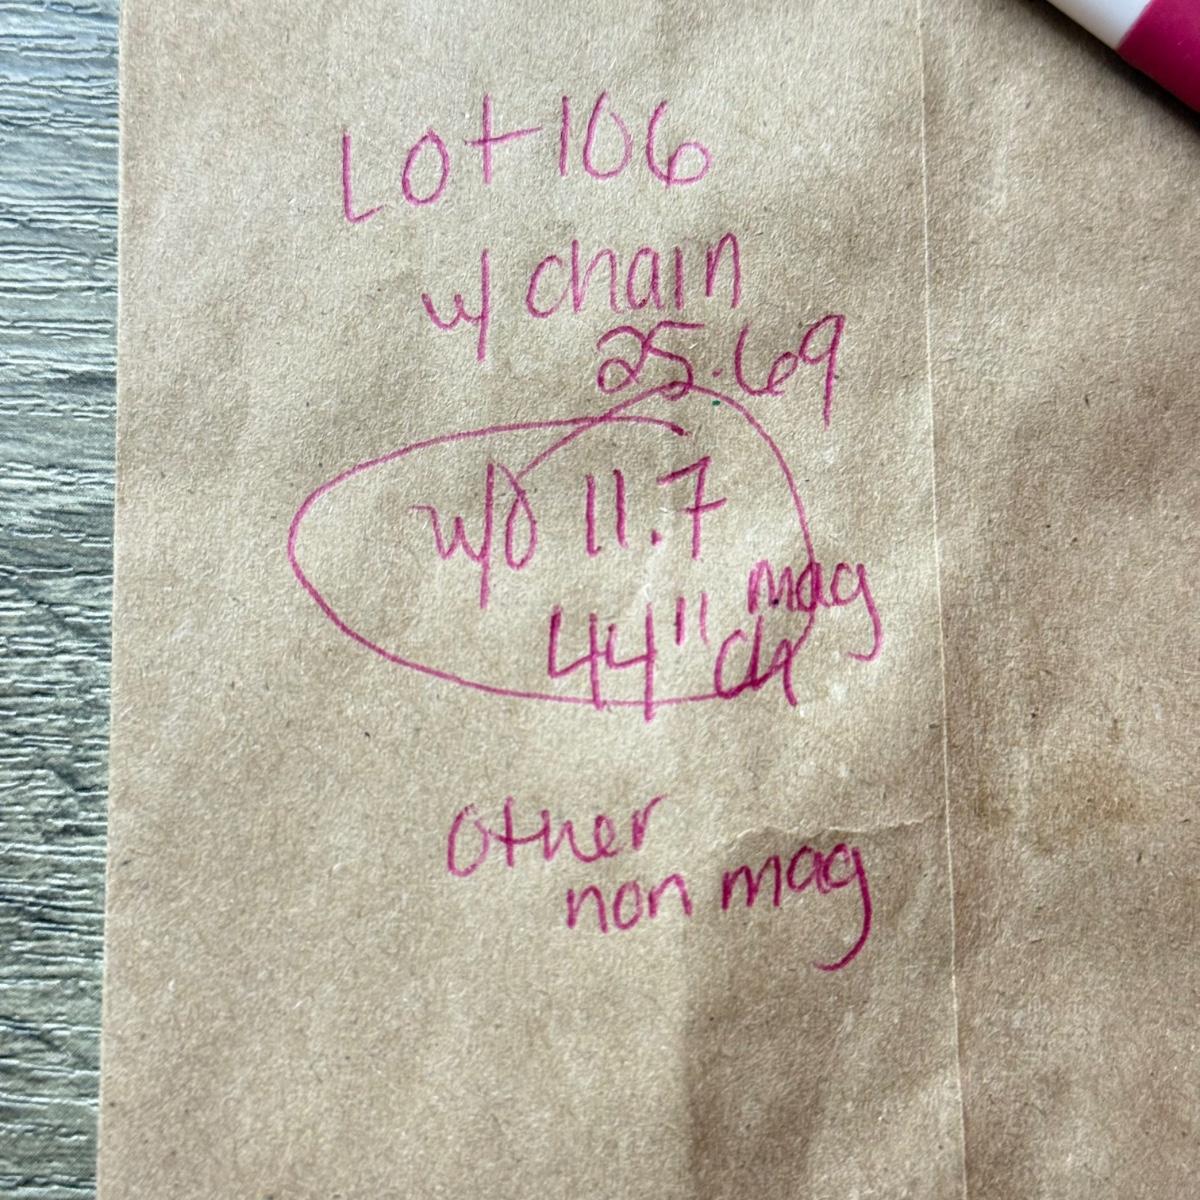 Lot 106
w/ chain
25.69
w/o 11.7
44" ch mag
other
non mag